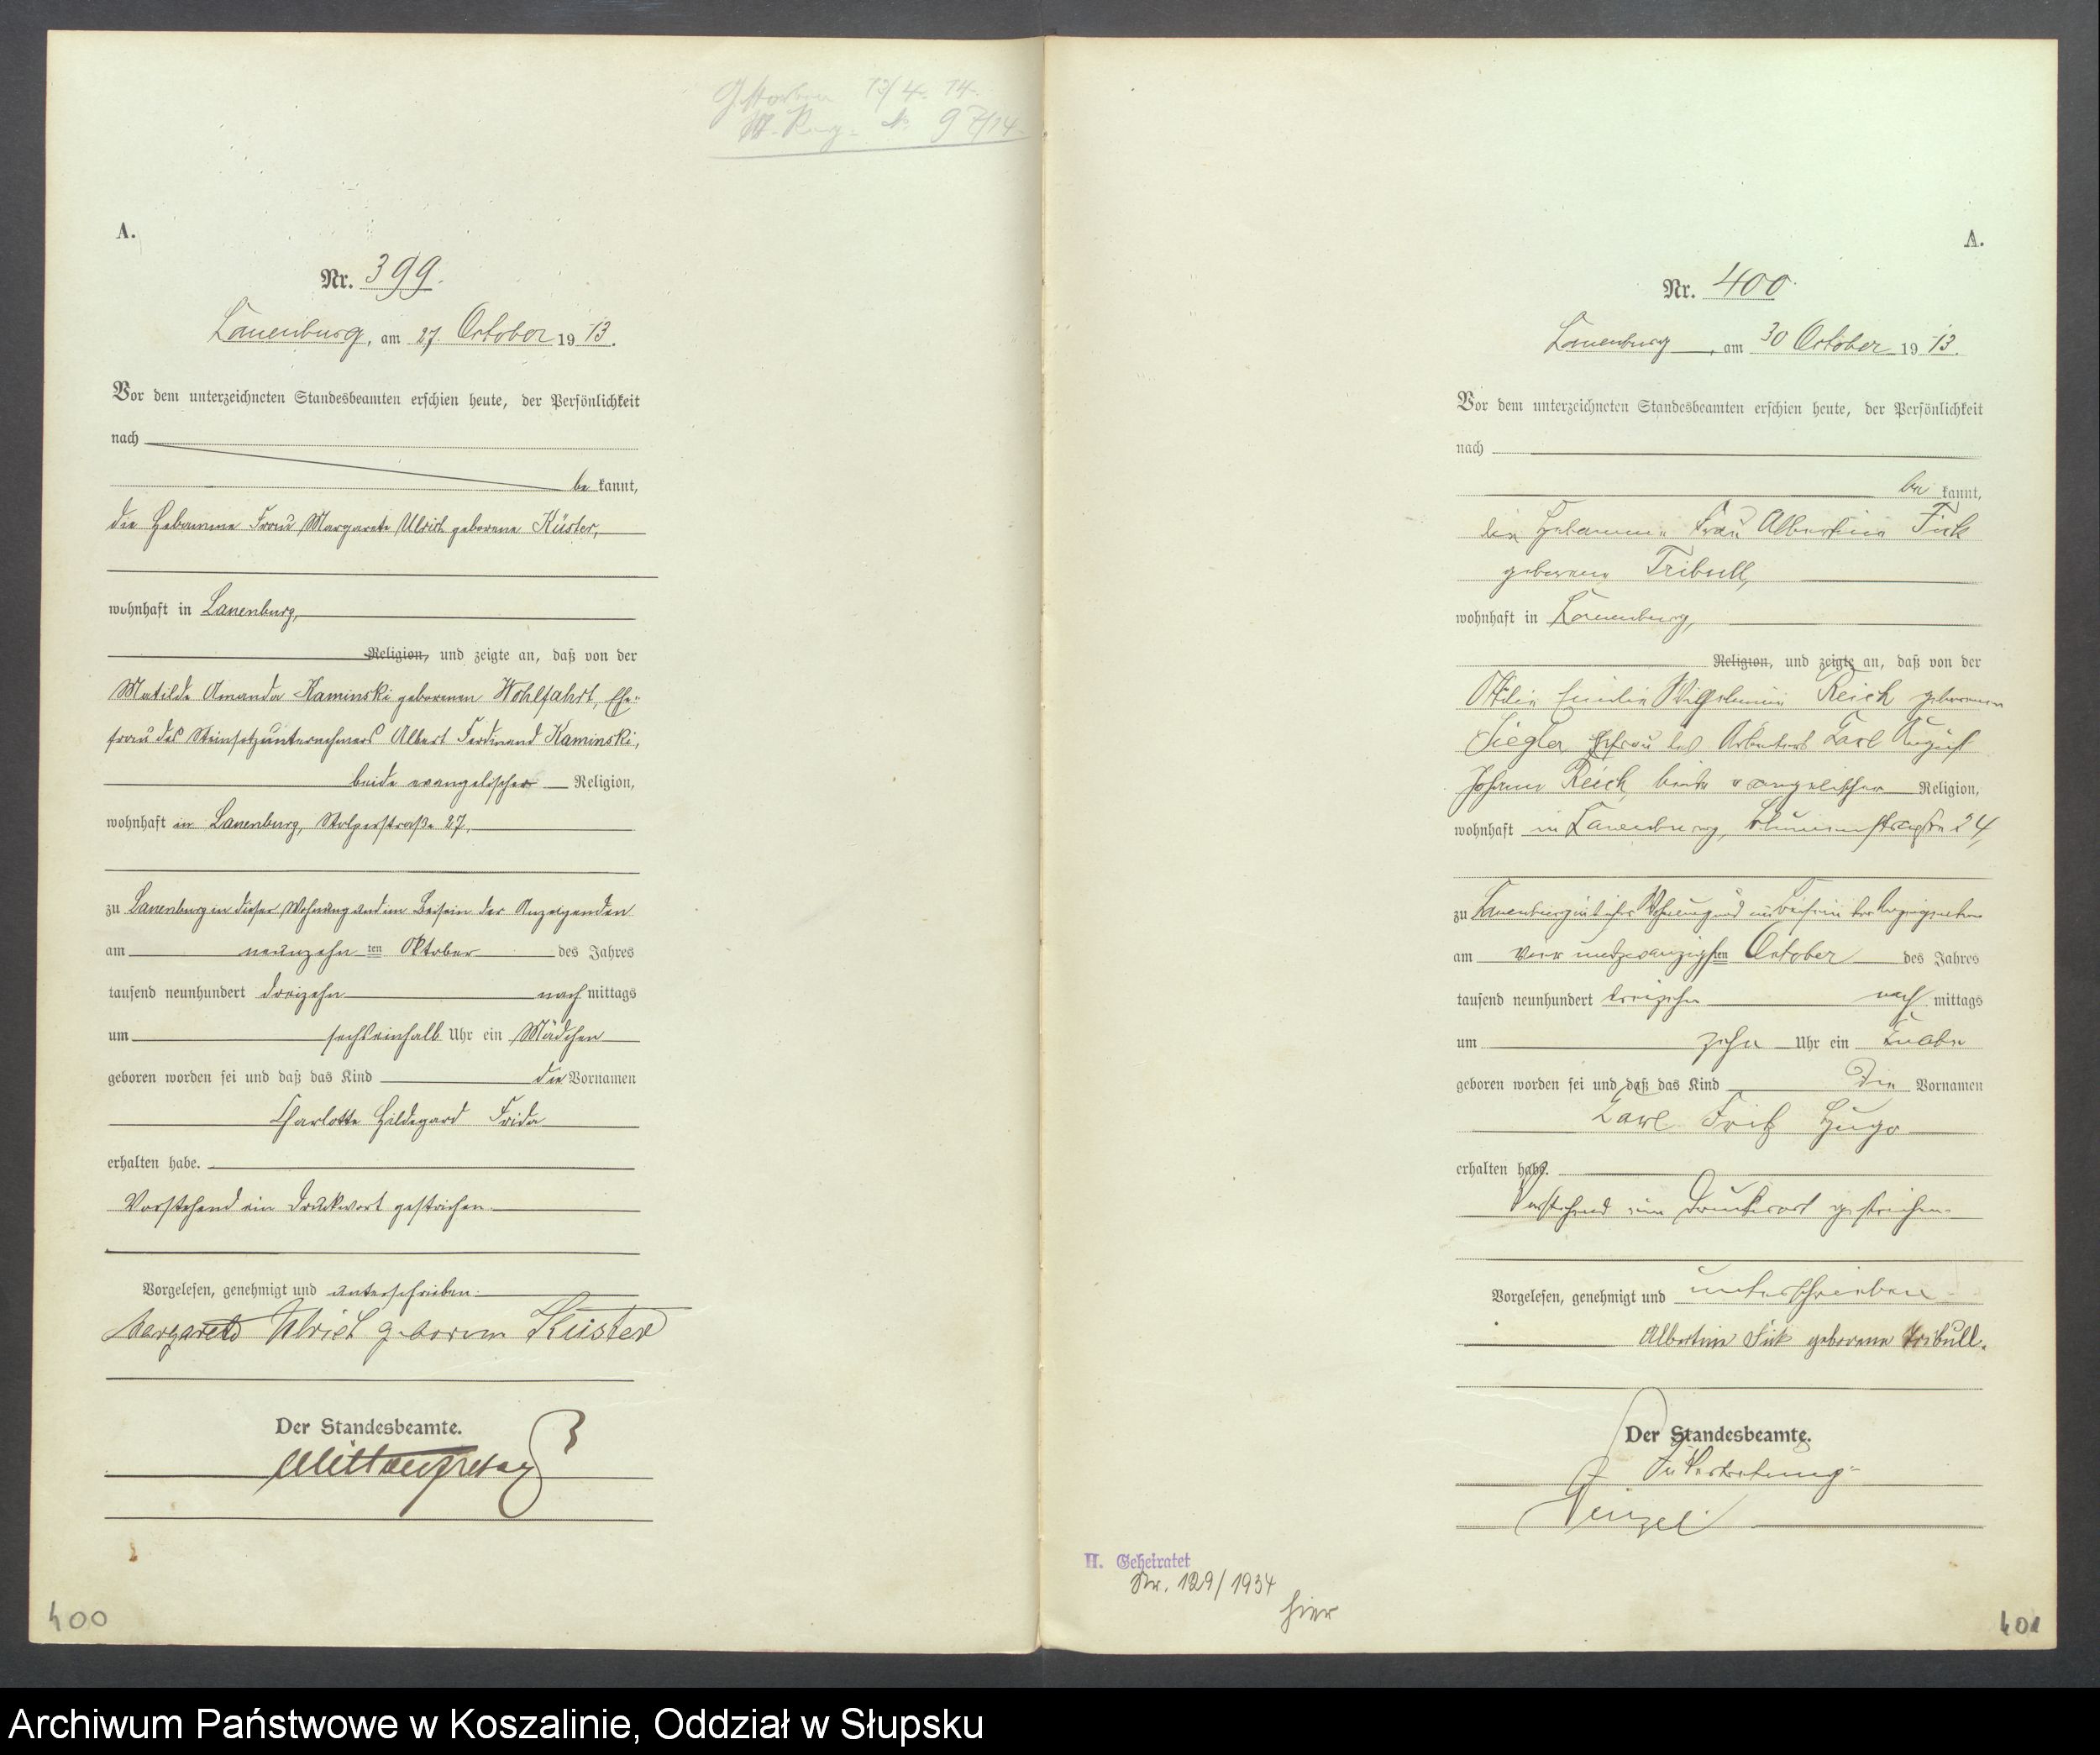 Gestorben 13/4. 14.
St. Reg. No 97/14.
A.
Nr. 399.
Lauenburg, am 27. October 1913.
Vor dem unterzeichneten Standesbeamten erschien heute, der Persönlichkeit
nach
be kannt,
die Hebamme Frau Margarete Ulrich geborene Küster,
wohnhaft in Lauenburg,
Religion, und zeigte an, daß von der
Matilde Amanda Kaminski geborenen Wohlfahrt, Ehe-
frau des Steinsetzunternehmers Albert Ferdinand Kaminski,
beide evangelischer Religion,
wohnhaft in Lauenburg, Stolperstraße 27,
zu Lauenburg in dieser Wohnung und im Beisein der Anzeigenden
am neunzehn ten Oktober des Jahres
tausend neunhundert dreizehn nach mittags
um sechseinhalb Uhr ein Mädchen
geboren worden sei und daß das Kind die Vornamen
Charlotte Hildegard Frida
erhalten habe.
Vorstehend ein Druckwort gestrichen.
Vorgelesen, genehmigt und unterschrieben.
Margarete Ulrich geborene Küster
Der Standesbeamte.
400
A.
Nr. 400.
Lauenburg, am 30 October 1913.
Vor dem unterzeichneten Standesbeamten erschien heute, der Persönlichkeit
nach
be kannt,
die Hebamme Frau Albertine Fick
geborene Tribull,
wohnhaft in Lauenburg,
Religion, und zeigte an, daß von der
Ottilie Emilie Wilhelmine Reich geborenen
Siegler, Ehefrau des Arbeiters Carl August
Johann Reich, beide evangelischer Religion,
wohnhaft in Lauenburg, Blumenstraße 24,
zu Lauenburg in dieser Wohnung und im Beisein der Anzeigenden
am vier undzwanzigsten October des Jahres
tausend neunhundert dreizehn nach mittags
um zehn Uhr ein Knabe
geboren worden sei und daß das Kind die Vornamen
Carl Fritz Hugo
erhalten habe.
Vorstehend ein Druckwort gestrichen.
Vorgelesen, genehmigt und unterschrieben.
Albertine Fick geborene Tribull.
Der Standesbeamte.
In Vertretung
H. Geheiratet
Nr. 129/1934
hier
401
Archiwum Państwowe w Koszalinie, Oddział w Słupsku